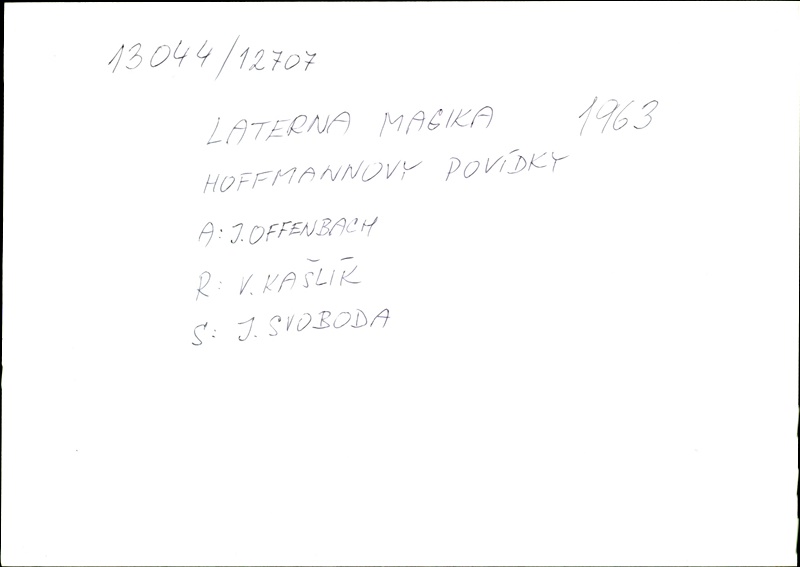 13044/12707
LATERNA MAGIKA 1963
HOFFMANNOVY POVÍDKY
A: J. OFFENBACH
R: V. KAŠLÍK
S: J. SVOBODA